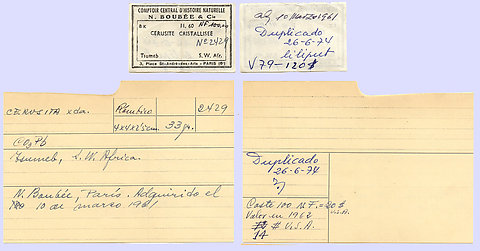 COMPTOIR CENTRAL D'HISTOIRE NATURELLE
N. BOUBÉE & Cie
8x 11.60 NF 100,00
CERUSITE CRISTALLISEE
Nº 2429
Tsumeb S.W. Afr.
3, Place St-André-des-Arts - PARIS (6e)
adq 10 Marzo 1961
Duplicado
26-6-74
liliput
V79-120$
CERUSITA xda.
Rómbico
2429
4x4x2½cm. 33 gr.
CO3Pb
Tsumeb, S.W. Africa.
N. Boubée, París. Adquirido el
10 de marzo 1961
Duplicado
26-6-74
Coste 100 N.F. = 20$
U.S.A.
Valor en 1962
$ U.S.A.
14